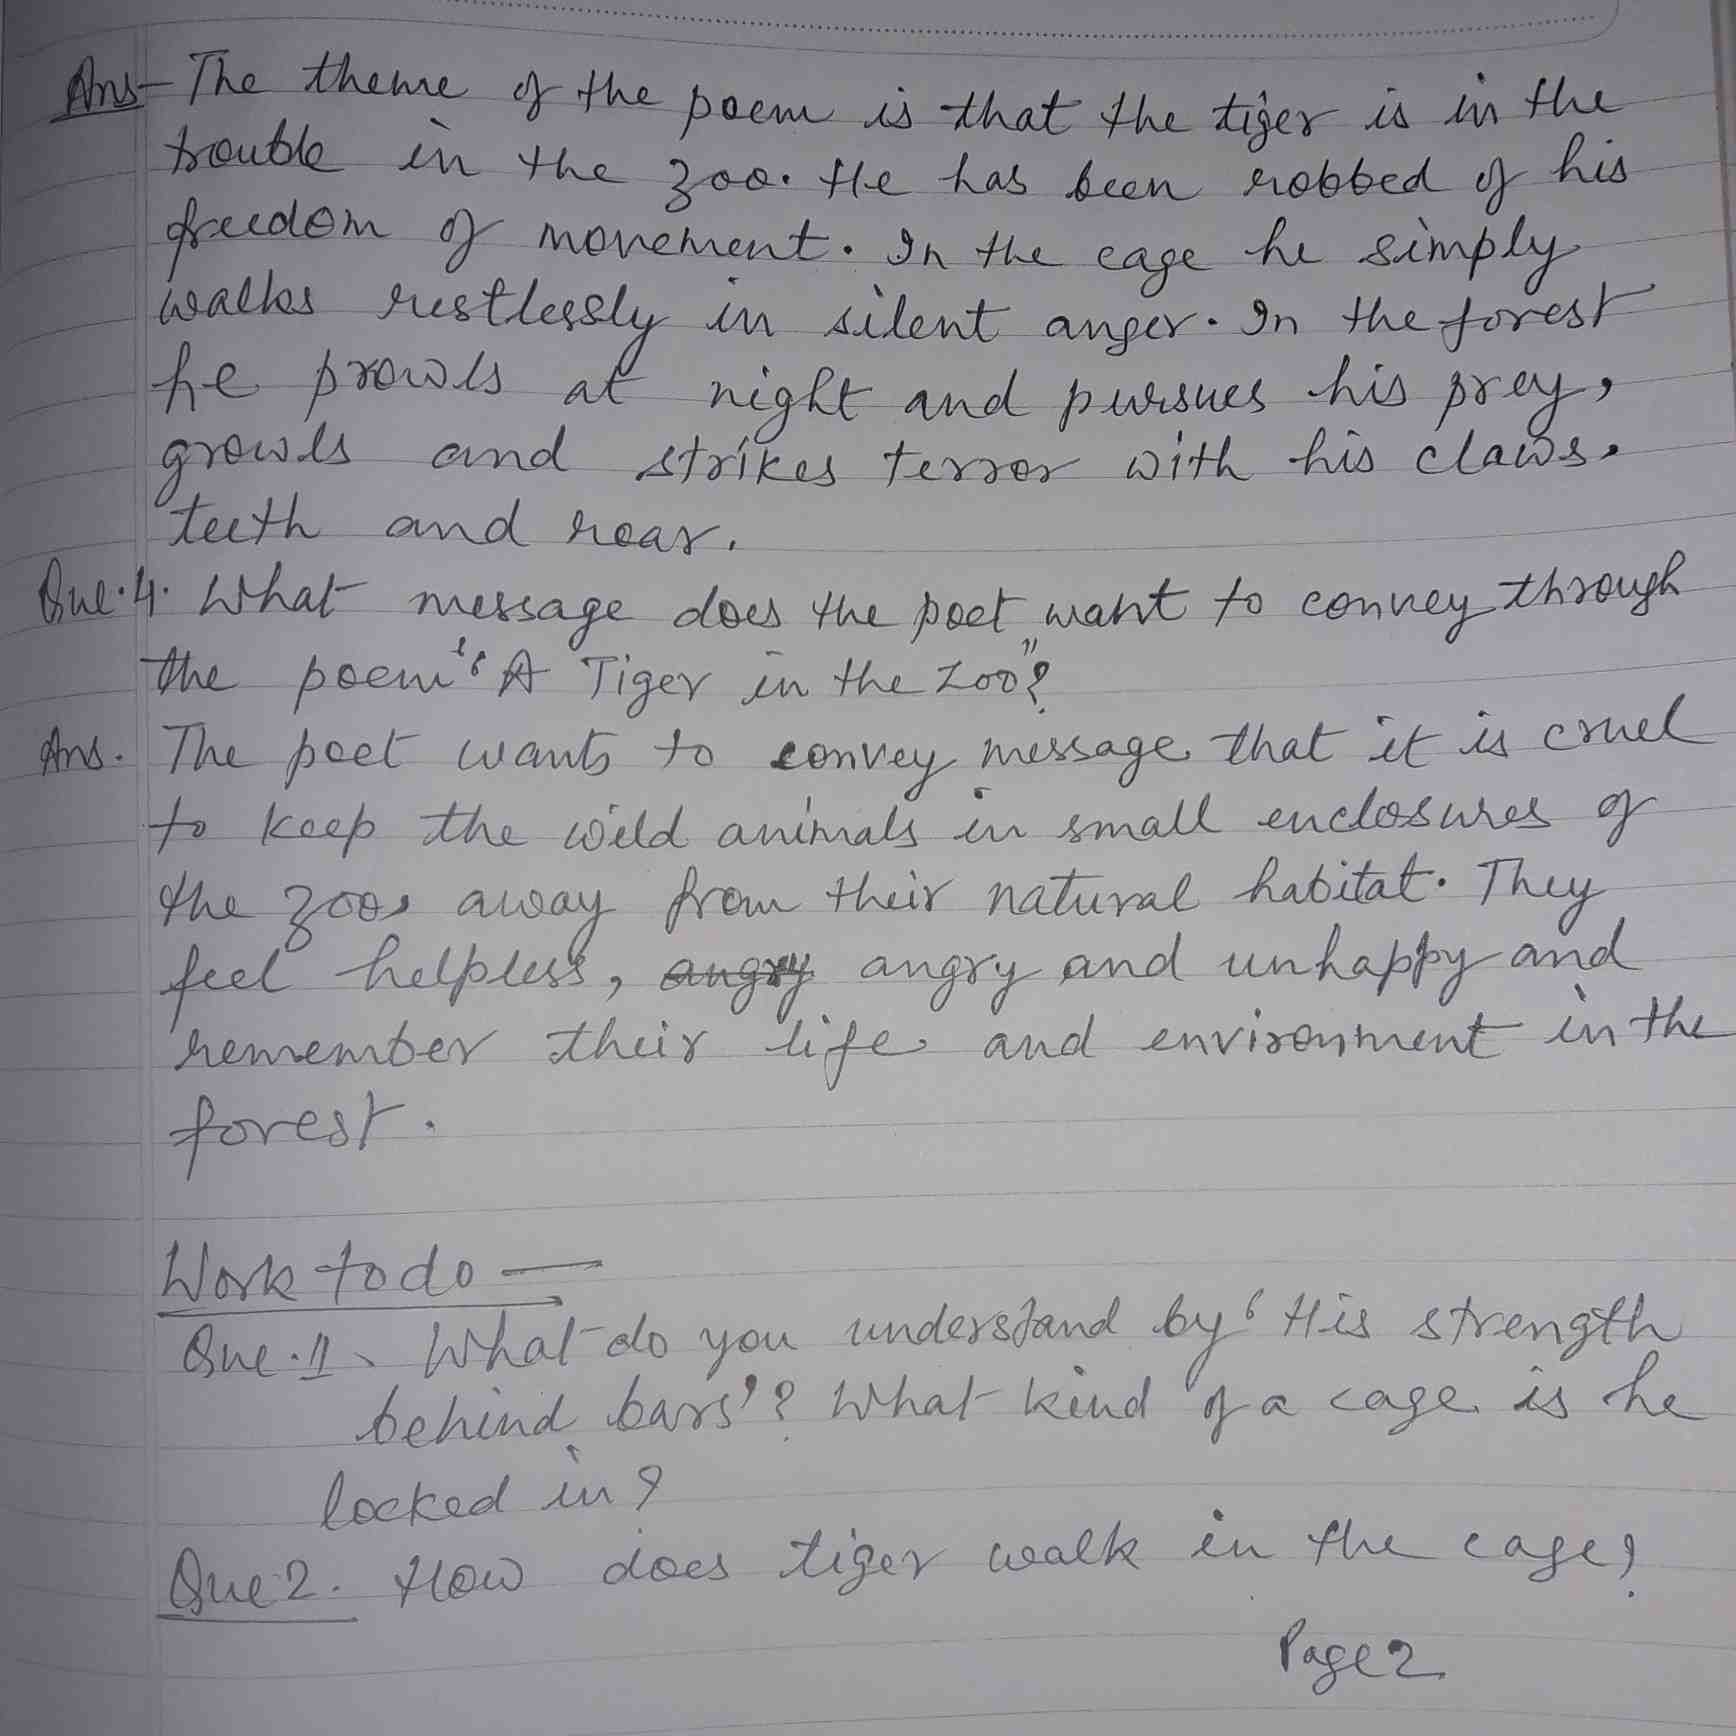 Ans- The theme of the poem is that the tiger is in the
trouble in the zoo. He has been robbed of his
freedom of movement. In the cage he simply
walks restlessly in silent anger. In the forest
he prowls at night and pursues his prey,
growls and strikes terror with his claws,
teeth and roar.
Que.4. What message does the poet want to convey through
the poem "A Tiger in the Zoo"?
Ans. The poet wants to convey message that it is cruel
to keep the wild animals in small enclosures of
the zoos away from their natural habitat. They
feel helpless, angry angry and unhappy and
remember their life and environment in the
forest.
Work to do —
Que.1. What do you understand by 'His strength
behind bars'? What kind of a cage is he
locked in?
Que 2. How does tiger walk in the cage?
Page 2